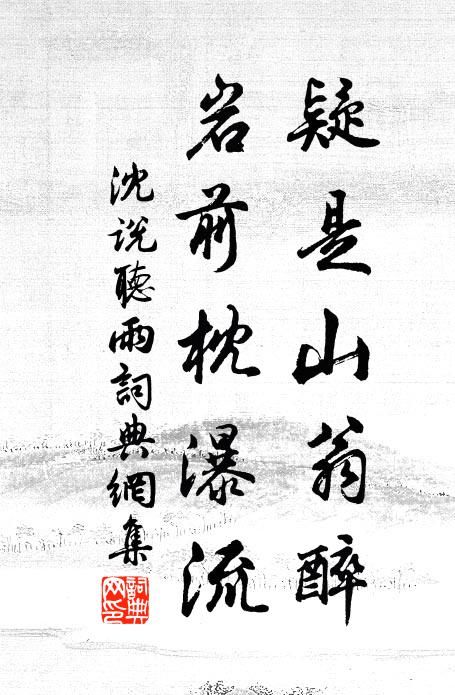 疑是山翁醉
岩前枕瀑流
沈说聽雨詞典網集
詞典網印